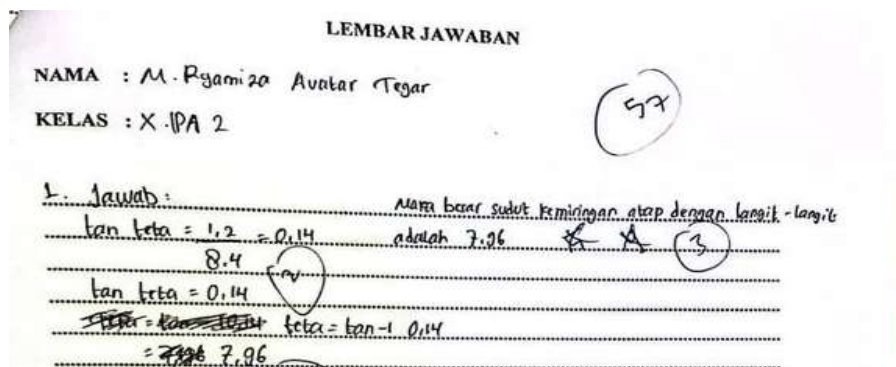 LEMBAR JAWABAN
NAMA : M. Ryamiza Avatar Tegar
KELAS : X.IPA 2
57
1. Jawab:
tan teta = 1,2 / 8.4 = 0,14
2
tan teta = 0,14
teta = tan-1 0,14
= 7,96
Maka besar sudut kemiringan atap dengan langit-langit
adalah 7.96
3